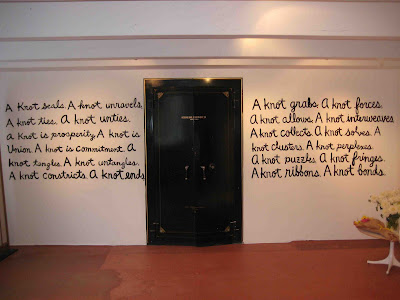 A Knot seals. A knot unravels.
A knot ties. A knot unties.
A knot is prosperity. A knot is
Union. A knot is commitment. A
knot tangles. A knot untangles.
A knot constricts. A knot ends
A knot grabs. A knot forces.
A knot allows. A knot interweaves
A knot collects. A knot solves. A
knot clusters. A knot perplexes.
A knot puzzles. A knot fringes.
A knot ribbons. A knot bonds.